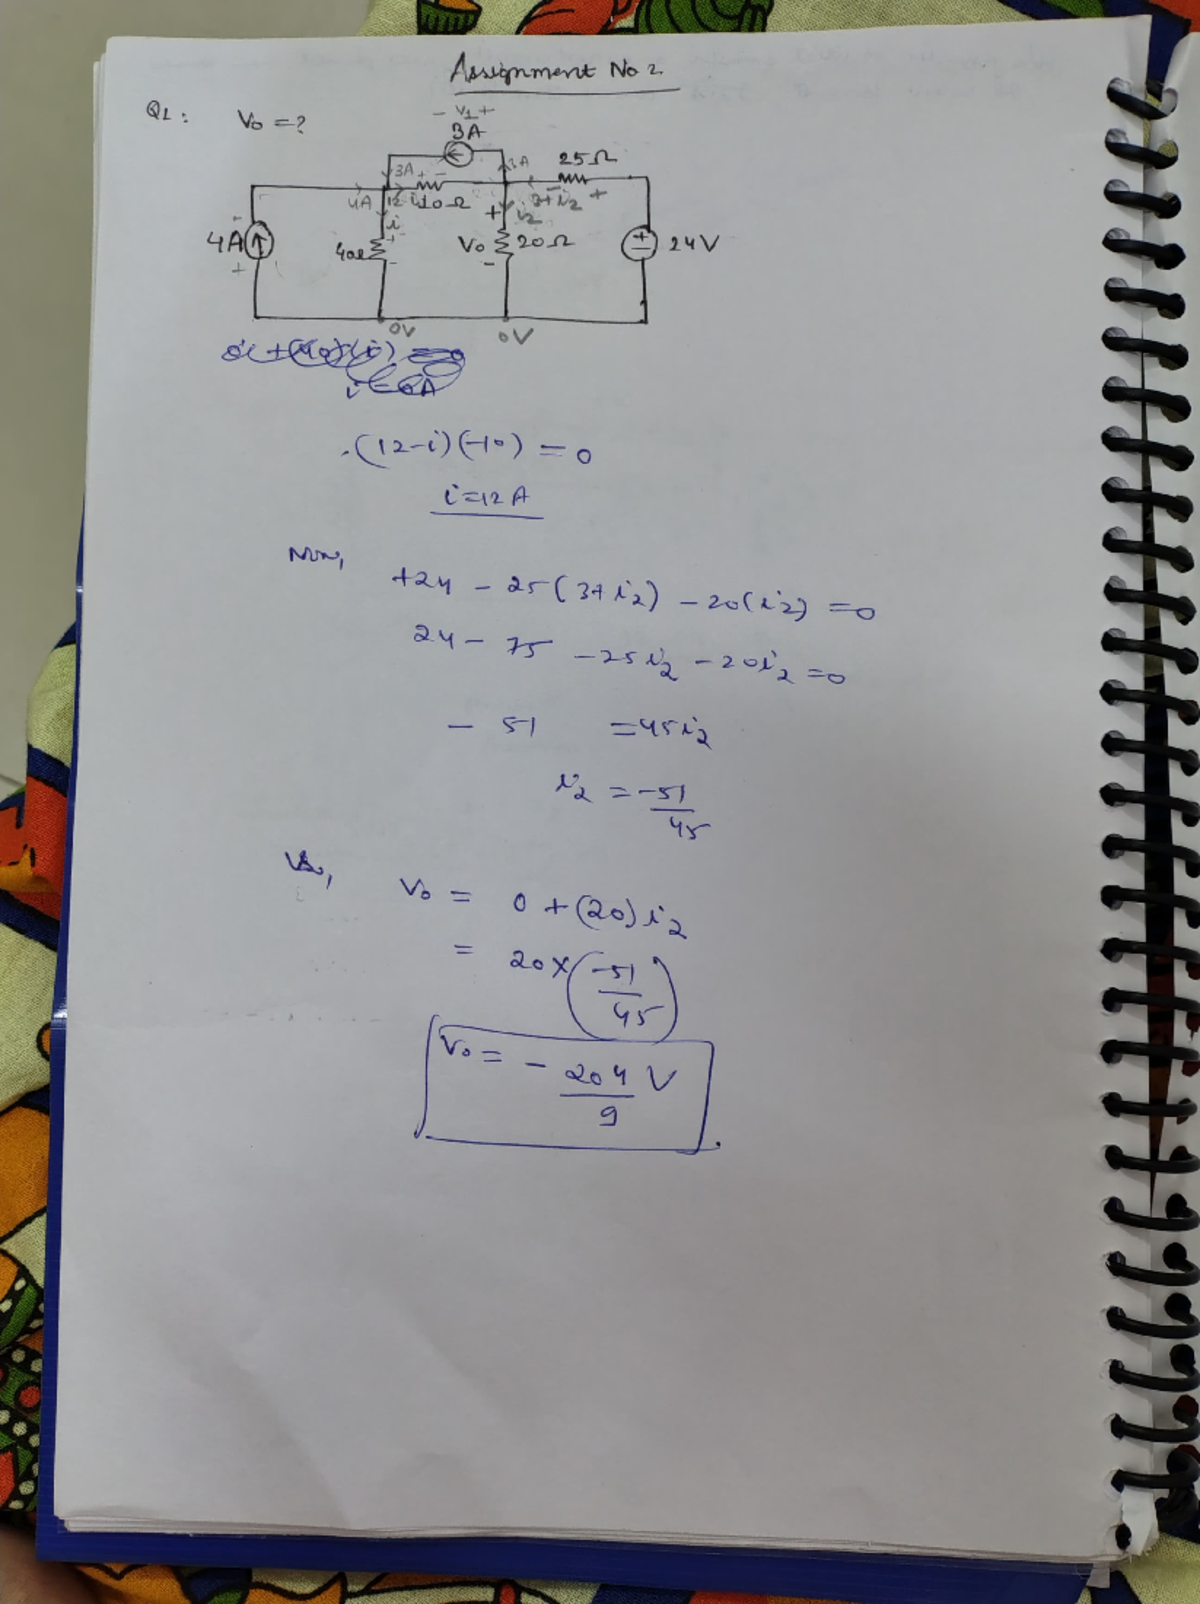 Assignment No 2
Q1: V₀ = ?
- V₁ +
3A
3A
3A
25Ω
4A
10Ω
3+i₂
i
i₂
4A
V₀
20Ω
24V
0V
0V
(12-i)(-10) = 0
i = 12A
Now,
+24 - 25(3+i₂) - 20(i₂) = 0
24 - 75 - 25i₂ - 20i₂ = 0
- 51 = 45i₂
i₂ = -51/45
V₀ = 0 + (20)i₂
= 20 × (-51/45)
V₀ = - 204/9 V